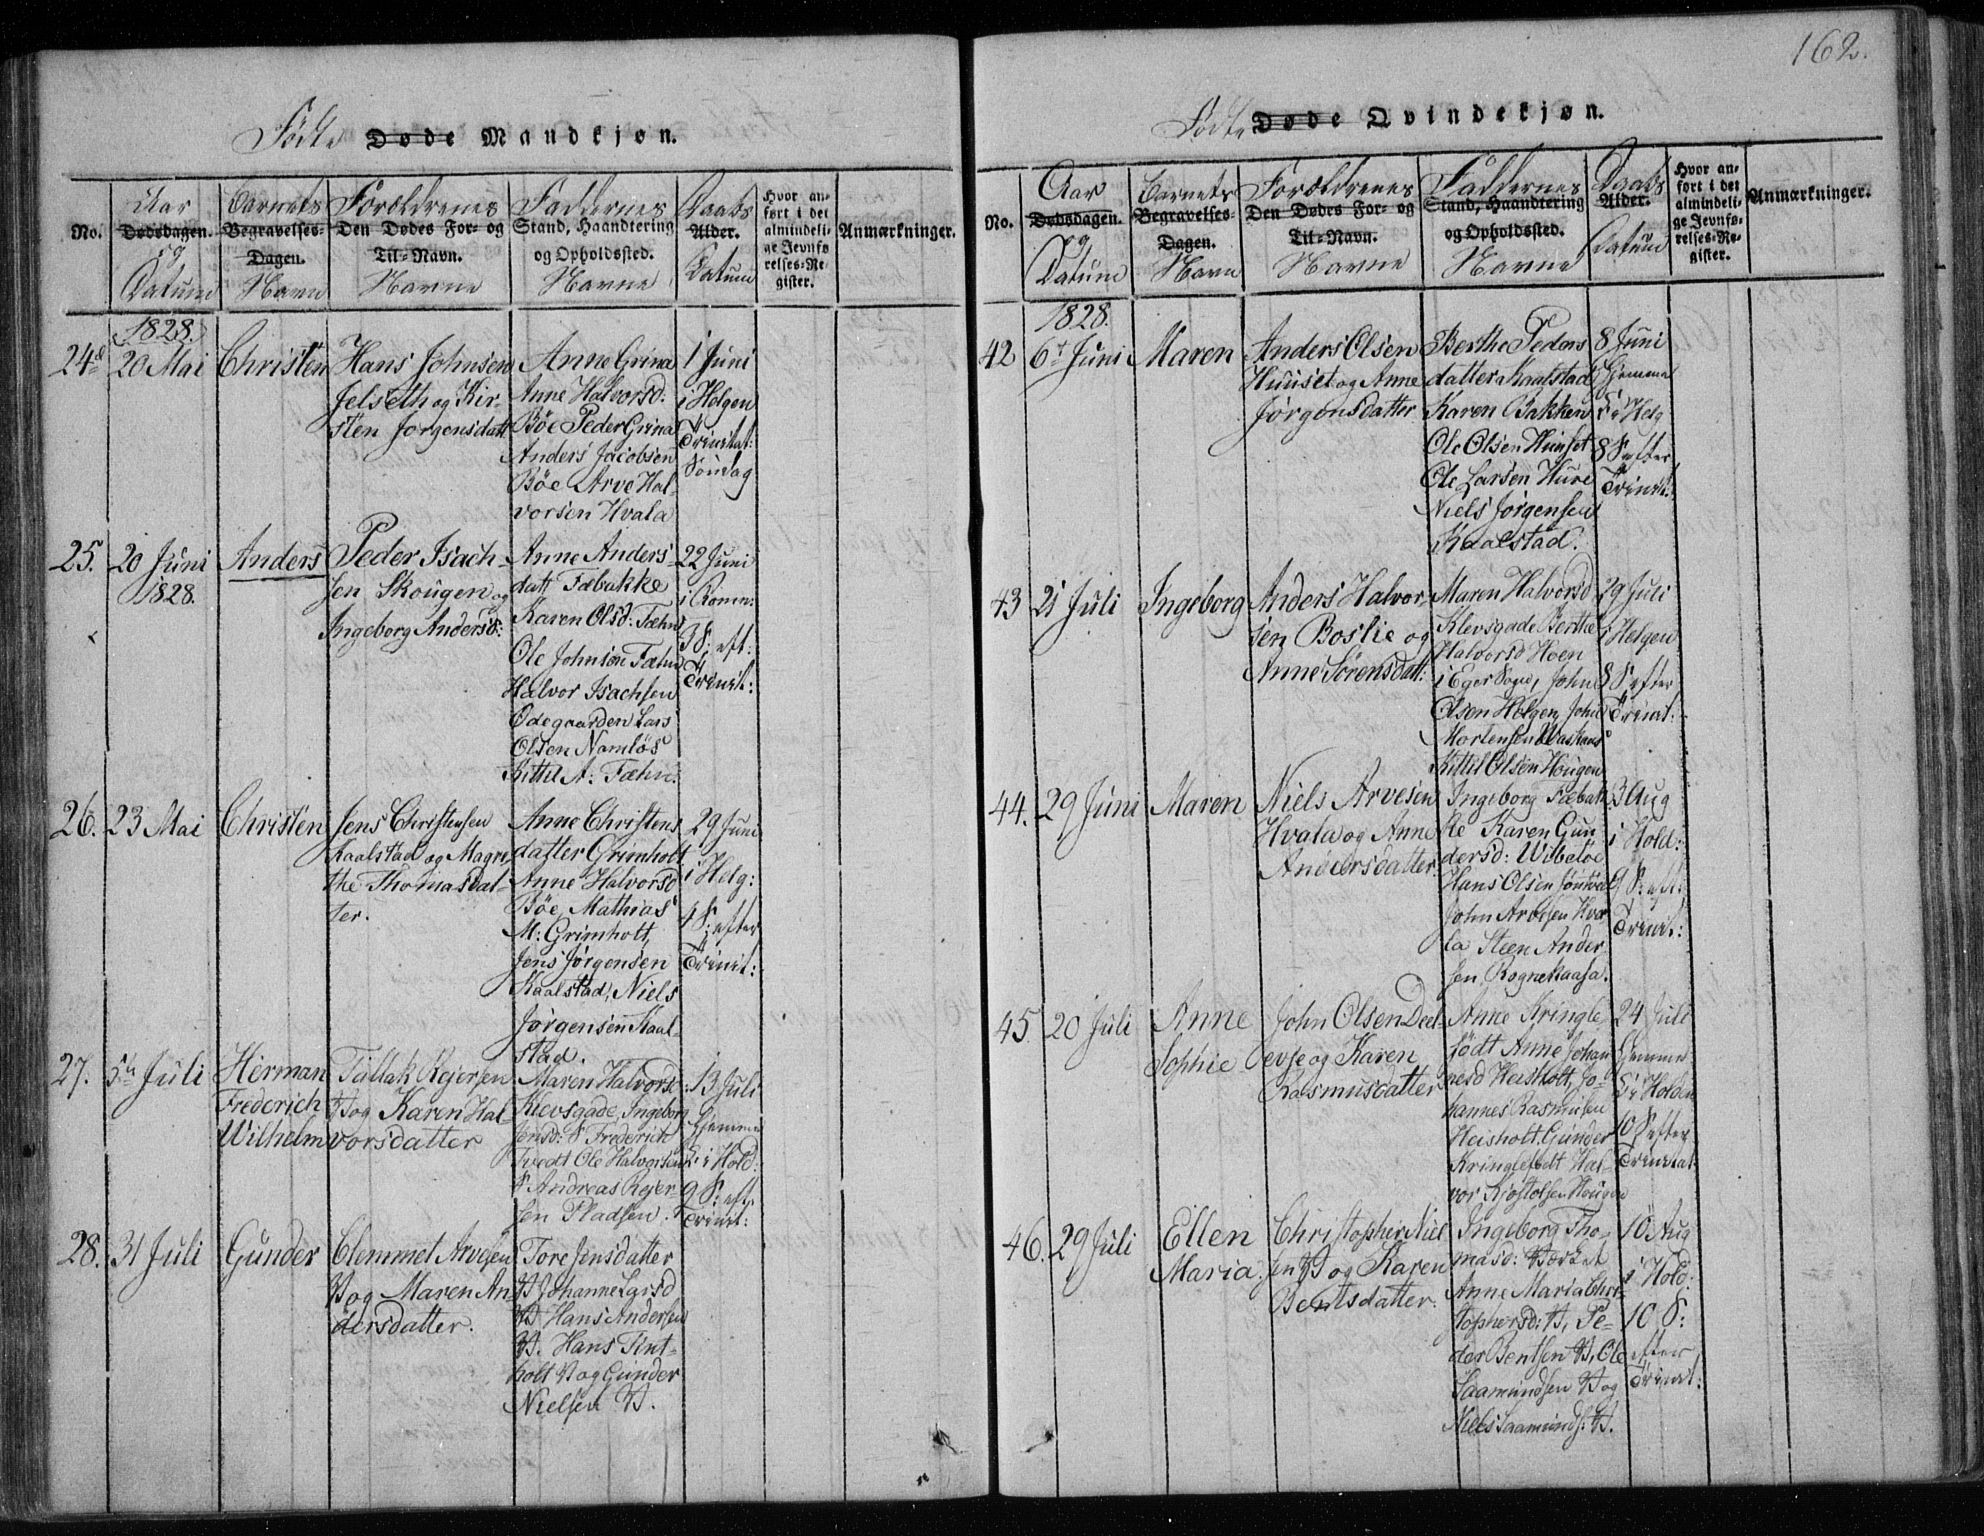 162.
Födte Döde Mandkjøn.
No.
Aar Dødsdagen. og Datum
Barnets Begravelses-Dagen. Navn
Forældrenes Den Dødes For- og Til-Navn. Navne
Faddernes Stand, Haandtering og Opholdssted. Navne
Daabs Alder. Datum
Hvor an-
ført i det
almindeli-
ge Jevnfø
relses-Re-
gister.
Anmærkninger.
1828.
24d
20 Mai
Christen
Hans Johnsen
Jelseth og Kir-
sten Jorgensdatt
Anne Grina
Anne Halvorsd:
Böe Peder Grina
Anders Jacobsen
Böe Arve Hal-
vorsen Hvala
1 Juni
i Helgen
Trinitat:
Söndag
25.
20 Juni
1828.
Anders
Peder Isach-
sen Skougen og
Ingeborg Andersd:
Anne Anders
datt Fæbakke
Karen Olsd: Fæhn
Ole Johnsen Fæhn
Halvor Isachsen
Ödegaarden Lars
Olsen Namlös
Kittil A: Fæhn:
22 Juni
i Romn:
3 S: eft:
Trinit:
26.
23 Mai
Christen
Jens Christensen
Kaalstad og Magre
the Thomasdat-
ter.
Anne Christens
datter Grimholt
Anne Halvorsd
Böe, Mathias
M: Grimholt,
Jens Jörgensen
Kaalstad, Niels
Jörgensen Kaal-
stad.
29 Juni
i Helg:
4 S: efter
Trinit:
27.
5te Juli
Herman
Frederich
Wilhelm
Tallak Rejersen
V og Karen Hal-
vorsdatter
Maren Halvors:
Klevsgade, Ingeborg
Jensd: Frederich
Tvedt Ole Halvorsen
Andreas Rejer-
sen Pladsen.
13 Juli
Hjemme
i Hold:
9 S: eft:
Trinit:
28.
31 Juli
Gunder
Clemmet Arvesen
V og Maren An-
dersdatter.
Tore Jensdatter
V Johanne Larsd
V Hans Andersen
V. Hans Tint-
holt V og Gunder
Nielsen V.
Födte Döde Qvindekjøn.
No.
Aar Dødsdagen. og Datum
Barnets Begravelses-Dagen. Navn
Forældrenes Den Dødes For- og Til-Navn. Navne
Faddernes Stand, Haandtering og Opholdssted. Navne
Daabs Alder. Datum
Hvor an-
ført i det
almindeli-
ge Jevnfø-
relses-Re-
gister.
Anmærkninger.
1828.
42
6te Juni
Maren
Anders Olsen
Huuset og Anne
Jörgensdatter
Berthe Peders
datter Kaalstad
Karen Bakken
Ole Olsen Huuset
Ole Larsen Hure
Niels Jörgensen
Kaalstad.
8 Juni
Hjemme
i Helg
8 S efter
Trinit:
43
21 Juli
Ingeborg
Anders Halvor-
sen Boslie og
Anne Sörensdatt:
Maren Halvorsd
Klevsgade Berthe
Halvorsd Hoen
i Eger Sogn, John
Olsen Helgen, John
Mortensen
Kittil Olsen Hougen
29 Juli
i Helgen
8 S efter
Trinit:
44.
29 Juni
Maren
Niels Arvesen
Hvala og Anne
Andersdatter
Ingeborg Fæbak
ke Karen Gun
dersd: Wibetöe
Hans Olsen
John Arvesen Hva
la Steen Ander
sen Rognekaasa.
3 Aug
i Hold:
9 S: eft:
Trinit:
45
20 Juli
Anne
Sophie
John Olsen Deel-
evje og Karen
Rasmusdatter
Anne Kringle-
födt Anne Johan
nesd Heisholt, Jo-
hannes Rasmusen
Heisholt, Gunder
Kringlefodt Hal-
vor Kjostolsen Hougen
24 Juli
Hjemme
i Holden
10 S efter
Trinitat:
46.
29 Juli
Ellen
Maria.
Christopher Niel
sen V og Karen
Bentsdatter.
Ingeborg Tho-
masd: Værket
Anne Maria Chri-
stophersd: V, Pe-
der Bentsen V, Ole
Saamundsen V og
Niels Saamunds: V.
10 Aug
i Hold:
10 S:
efter
Trinit: